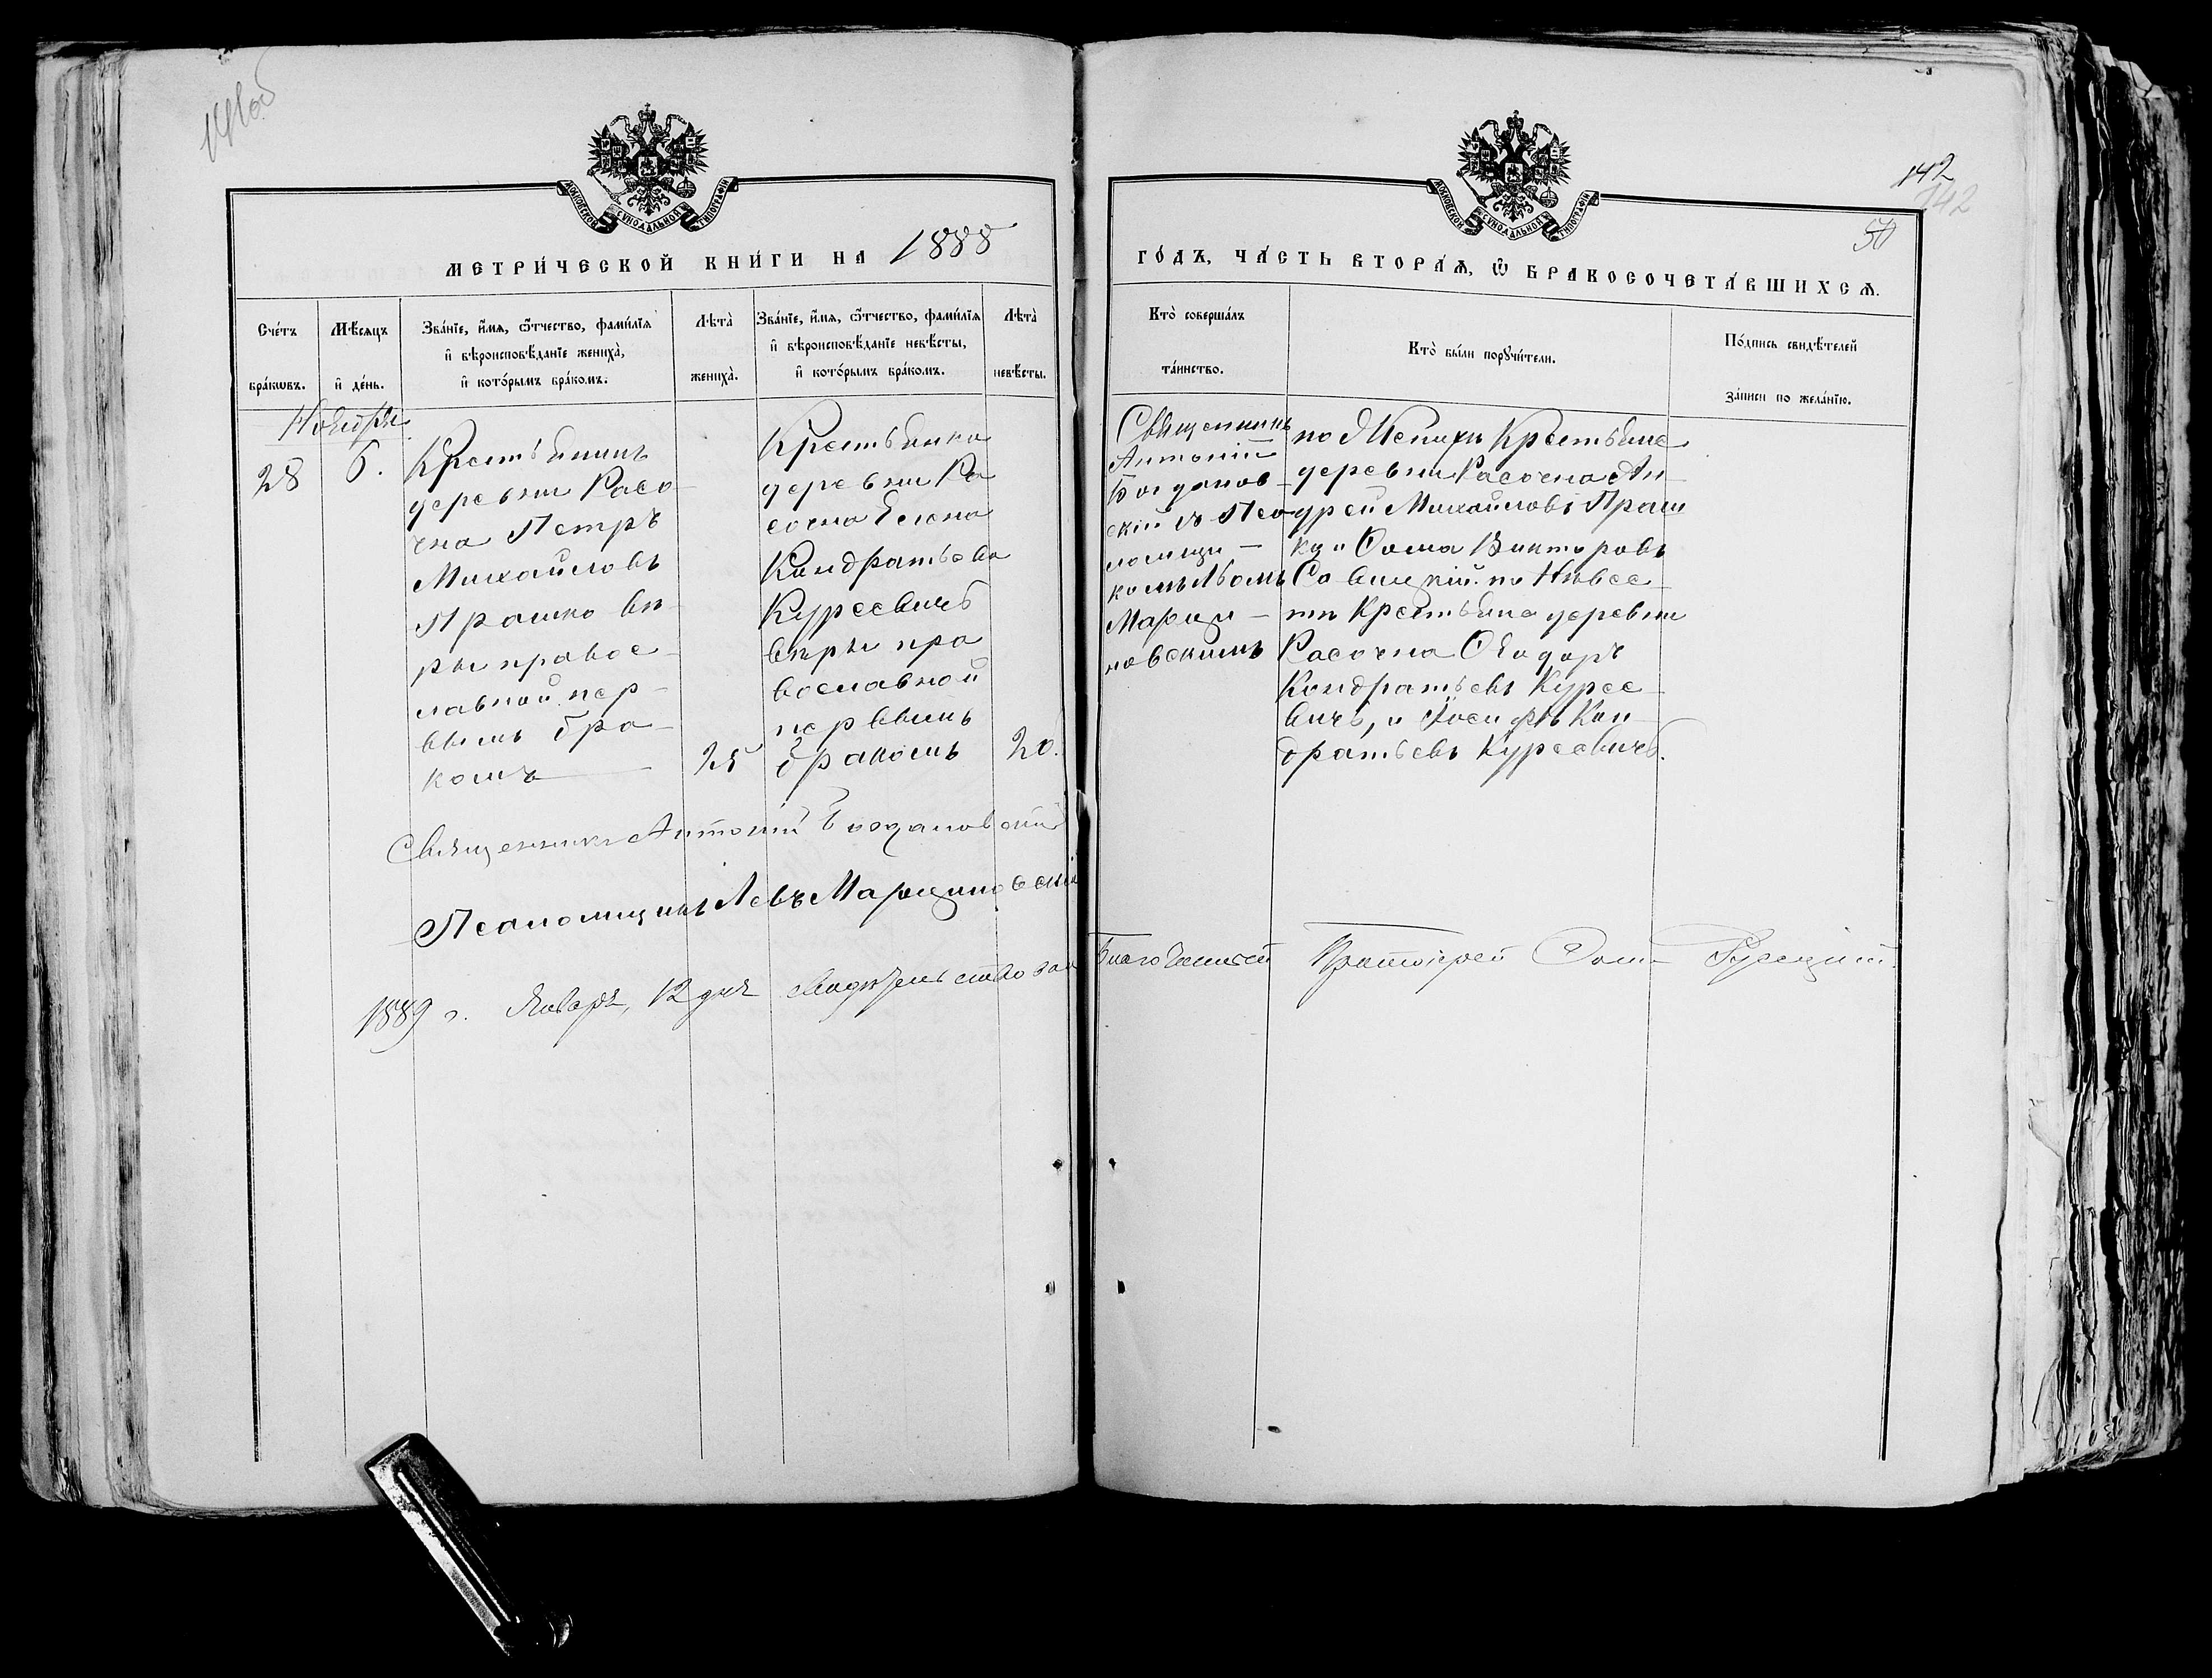 141об
МОСКОВСКОЙ СѴНОДАЛЬНОЙ ТИПОГРАФІИ
МЕТРИ́ЧЕСКОЙ КНИ́ГИ НА 1888
Сче́тъ бра́кѡвъ.
Мѣ́сяцъ и҆ де́нь.
Зва́нїе, и҆́мя, ѻ҆́тчество, фами́лїя
и҆ вѣроисповѣ́данїе жениха̀,
и҆ кото́рымъ бра́комъ.
Лѣта̀ жениха̀.
Зва́нїе, и҆́мя, ѻ҆́тчество, фами́лїя
и҆ вѣроисповѣ́данїе невѣ́сты,
и҆ кото́рымъ бра́комъ.
Лѣта̀ невѣ́сты.
Ноября
28
6.
Крестьянинъ
деревни Расо-
хна Петръ
Михайловъ
Прашко вѣ-
ры правос-
лавной пер-
вымъ бра-
комъ
25
Крестьянка
деревни Ра
сохна Елена
Кондратьева
Курсевичъ
вѣры пра
вославной
первымъ
бракомъ
20.
Священникъ Антоній Богдановскій
Псаломщикъ Левъ Марциновскій
1889 г. Января, 12 дня
МОСКОВСКОЙ СѴНОДАЛЬНОЙ ТИПОГРАФІИ
142
142
50
ГО́ДЪ, ЧА́СТЬ ВТОРА́Ѧ, Ѡ҆ БРАКОСОЧЕТА́ВШИХСѦ.
Кто̀ соверша́лъ
та́инство.
Кто̀ бы́ли порꙋчи́тели.
По́дпись свидѣ́телей
за́писи по жела́нїю.
Священникъ
Антоній
Богданов-
скій съ Пса-
ломщи-
комъ Львомъ
Марци-
новскимъ
по Женихѣ Крестьяне
деревни Расохна Ан-
дрей Михайловъ Праш
ко и Ѳома Викторовъ
Савицкій. по Невѣс-
тѣ Крестьяне деревни
Расохна Ѳеодоръ
Кондратьевъ Курсе-
вичъ, и Іосифъ Кон-
дратьевъ Курсевичъ.
Благочинный Протоіерей